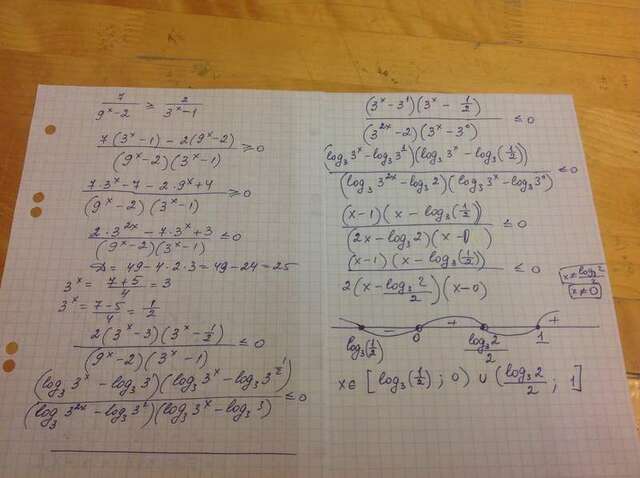 7/(9^x-2) ≥ 2/(3^x-1)
(7(3^x-1)-2(9^x-2))/((9^x-2)(3^x-1)) ≥ 0
(7·3^x-7-2·9^x+4)/((9^x-2)(3^x-1)) ≥ 0
(2·3^{2x}-7·3^x+3)/((9^x-2)(3^x-1)) ≤ 0
D = 49-4·2·3=49-24=25
3^x = (7+5)/4 = 3
3^x = (7-5)/4 = 1/2
(2(3^x-3)(3^x-1/2))/((9^x-2)(3^x-1)) ≤ 0
((log_3 3^x - log_3 3^1)(log_3 3^x - log_3 3^{1/2}))/((log_3 3^{2x} - log_3 3^2)(log_3 3^x - log_3 3)) ≤ 0
((3^x-3^1)(3^x-1/2))/((3^{2x}-2)(3^x-3^0)) ≤ 0
((log_3 3^x - log_3 3^1)(log_3 3^x - log_3(1/2)))/((log_3 3^{2x} - log_3 2)(log_3 3^x - log_3 3^0)) ≤ 0
((x-1)(x-log_3(1/2)))/((2x-log_3 2)(x-0)) ≤ 0
((x-1)(x-log_3(1/2)))/(2(x-(log_3 2)/2)(x-0)) ≤ 0
x≠(log_3 2)/2
x≠0
- + - +
log_3(1/2) 0 (log_3 2)/2 1
x∈[log_3(1/2); 0) ∪ ((log_3 2)/2; 1]